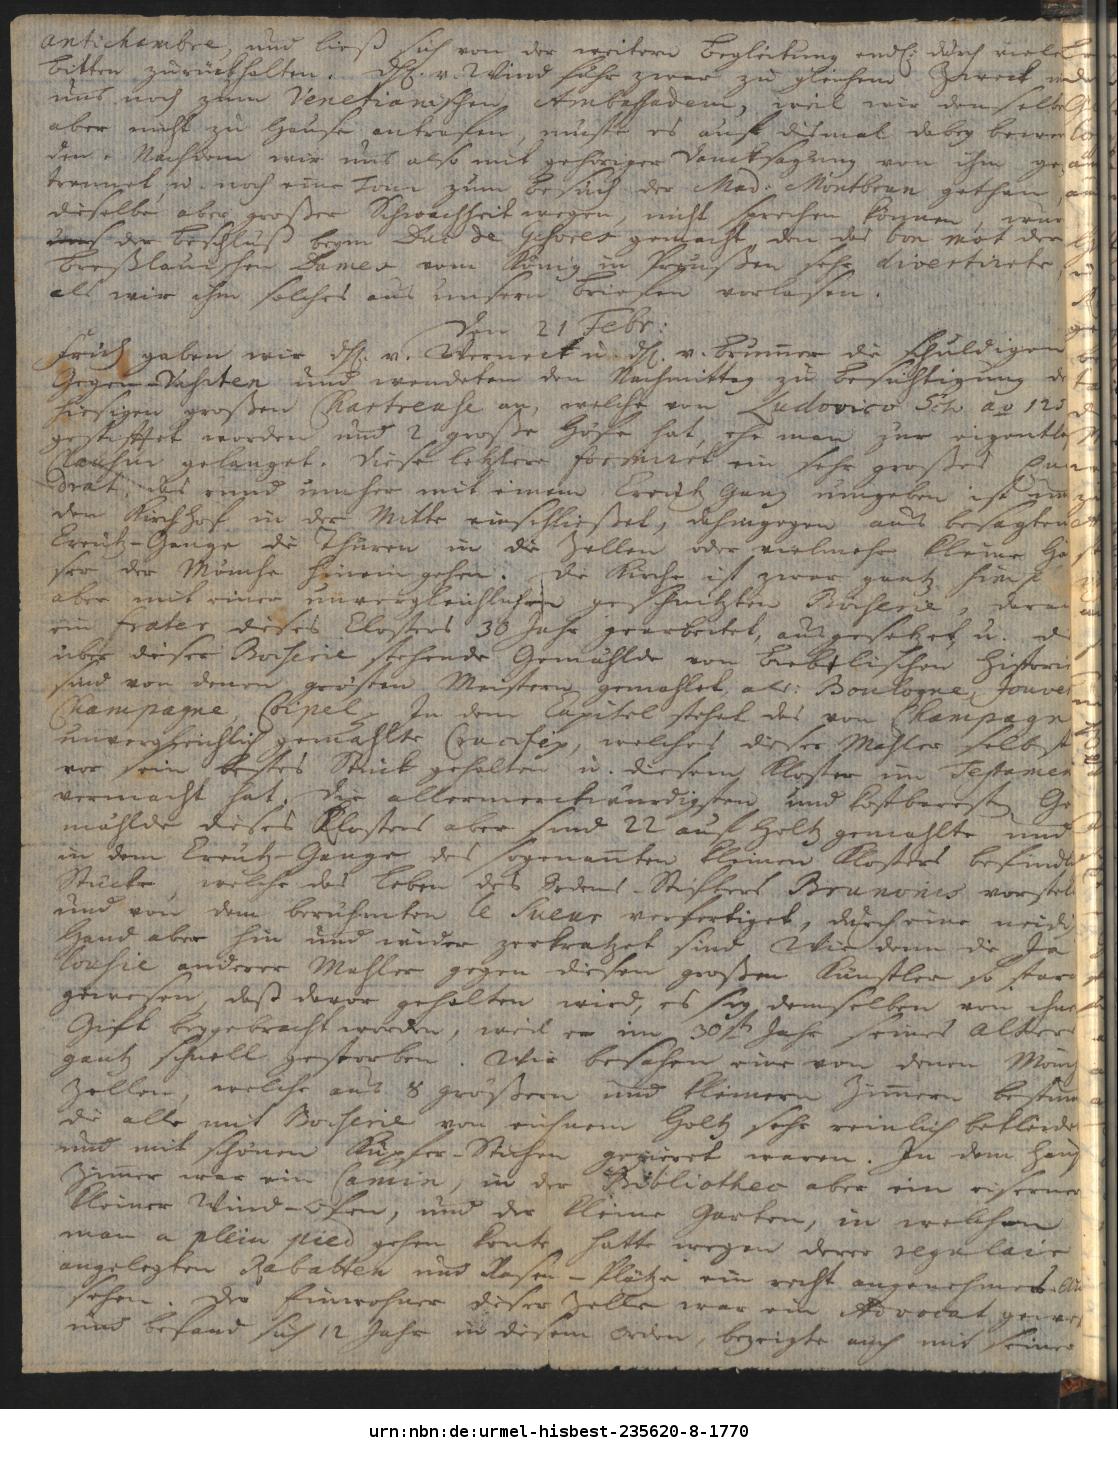 antichambre, und ließ sich von der weitern Begleitung endl: durch vieles
bitten zurückhalten. dH. v. Wind fuhr zwar zu gleichem Zweck
uns noch zum Venetianischen Ambassadeur, weil wir denselben
aber nicht zu Hause antrafen, muste es auf dismal dabey bewen
den. Nachdem wir uns also mit gehöriger Dancksagung von ihm ge
trennet, u. noch eine Tour zum Besuch der Mad: Montbrun gethan,
dieselbe aber großer Schwachheit wegen, nicht sprechen können, wur
der Beschluß beym Duc de gemacht, den das bon mot der
Breßlauischen Dames vom König in Preußen sehr divertirete,
als wir ihm solches aus unsern Briefen vorlasen.
den 21 Febr:
Früh gaben wir dH. v. Werneck u. dH. v. Brunner die schuldigen
Gegen-Visiten und wendeten den Nachmittag zu Besichtigung de
hiesigen großen Chartreuse an, welche von Ludovico Scto ao 125
gestifftet worden und 2 große Höfe hat, ehe man zur eigentl
Clausur gelanget. Diese letztere formiret ein sehr großes Qua
drat, das rund umher mit einem Creutz Gang umgeben ist
den Kirchhof in der Mitte einschließet, dahingegen aus besagten
Creutz-Gange die Thüren in die Zellen oder vielmehr kleine Häu
ser der Mönche hinein gehen. Die Kirche ist zwar gantz simpl
aber mit einer unvergleichlichen geschnitzten Boiserie, daran
ein frater dieses Closters 30 Jahr gearbeitet, ausgesetzet u. die
über dieser Boiserie stehende Gemählde von Bieblischen Histori
sind von denen grösten Meistern gemahlet, als: Boulogne, Jouve
Champagne, Coipel. In dem Capitel stehet das von Champagn
unvergleichlich gemahlte Crucifix, welches dieser Mahler selbst
vor sein bestes Stück gehalten u. diesem Kloster im Testamen
vermacht hat. Die allermerckwürdigsten und kostbaresten Ge
mählde dieses Klosters aber sind 22 auf Holtz gemahlte und
in dem Creutz-Gange des sogenannten kleinen Klosters befindl
Stücke, welche das Leben des Ordens-Stifters Brunonis vorstel
und von dem berühmten le Sueur verfertiget, durch eine neidi
Hand aber hin und wider zerkratzet sind. Wie denn die Ja
lousie anderer Mahler gegen diesen großen Künstler so starck
gewesen, daß davor gehalten wird, es sey demselben von ihne
Gift beygebracht worden, weil er im 30st Jahr seines Alters
gantz schnell gestorben. Wir besahen eine von denen Mönch
Zellen, welche aus 8 größern und kleinern Zimmern bestun
die alle mit Boiserie von eichnem Holtz sehr reinlich bekleide
und mit schönen Kupfer-Stichen gezieret waren. In dem Haupt
Zimmer war ein Camin, in der Bibliothec aber ein eiserner
kleiner Wind-Ofen, und der kleine Garten, in welchen
man a plein pied gehen konte, hatte wegen derer regulair
angelegten Rabatten und Rasen-Plätze ein recht angenehmes An
sehen. Der Einwohner dieser Zelle war ein Advocat gewes
und befand sich 12 Jahr in diesem Orden, bezeigte auch mit seiner
urn:nbn:de:urmel-hisbest-235620-8-1770